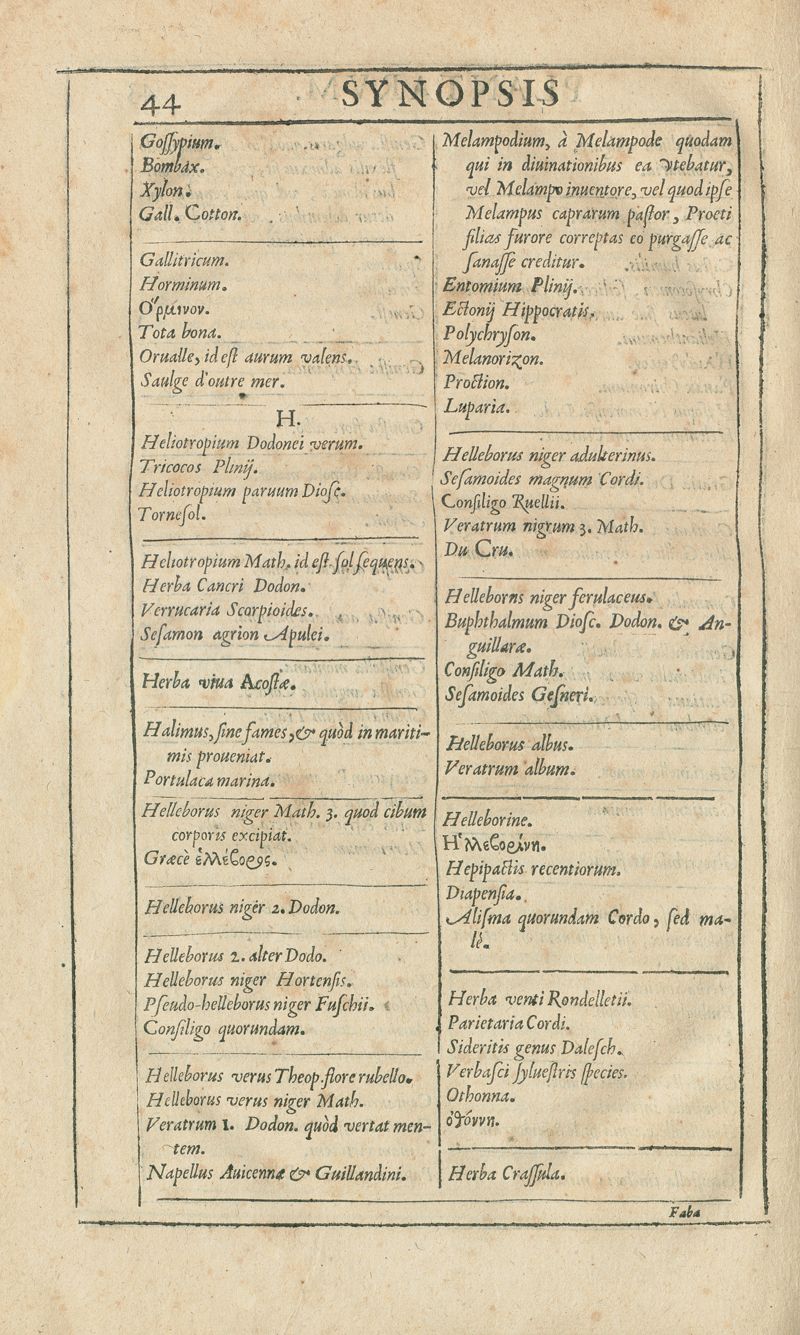 44 SYNOPSIS
Goſſypium.
Bombax.
Xylon.
Gall. Cotton.
Gallitricum.
Horminum.
Ὅρμινον.
Tota bona.
Orualle, id eſt aurum valens.
Saulge d'outre mer.
H.
Heliotropium Dodonei verum.
Tricocos Plinij.
Heliotropium paruum Dioſc.
Torneſol.
Heliotropium Math. id eſt ſolſequens.
Herba Cancri Dodon.
Verrucaria Scorpioides.
Seſamon agrion Apulei.
Herba viua Acoſtæ.
Halimus, ſine fames, & quòd in mariti-
mis proueniat.
Portulaca marina.
Helleborus niger Math. 3. quod cibum
corporis excipiat.
Græcè ἑλλέβορος.
Helleborus niger 2. Dodon.
Helleborus 2. alter Dodo.
Helleborus niger Hortenſis.
Pſeudo-helleborus niger Fuſchii.
Conſiligo quorundam.
Helleborus verus Theop. flore rubello.
Helleborus verus niger Math.
Veratrum 1. Dodon. quòd vertat men-
tem.
Napellus Auicennæ & Guillandini.
Melampodium, à Melampode quodam
qui in diuinationibus ea vtebatur,
vel Melampo inuentore, vel quod ipſe
Melampus caprarum paſtor, Proeti
filias furore correptas eo purgaſſe ac
ſanaſſe creditur.
Entomium Plinij.
Ectonij Hippocratis.
Polychryſon.
Melanorizon.
Proction.
Luparia.
Helleborus niger adulterinus.
Seſamoides magnum Cordi.
Conſiligo Ruellii.
Veratrum nigrum 3. Math.
Du Cru.
Helleborns niger ferulaceus.
Buphthalmum Dioſc. Dodon. & An-
guillaræ.
Conſiligo Math.
Seſamoides Geſneri.
Helleborus albus.
Veratrum album.
Helleborine.
Ἡλλεβορίνη.
Hepipactis recentiorum.
Diapenſia.
Aliſma quorundam Cordo, ſed ma-
lè.
Herba venti Rondelletii.
Parietaria Cordi.
Sideritis genus Daleſch.
Verbaſci ſylueſtris ſpecies.
Othonna.
ὀθόννη.
Herba Craſſula.
Faba